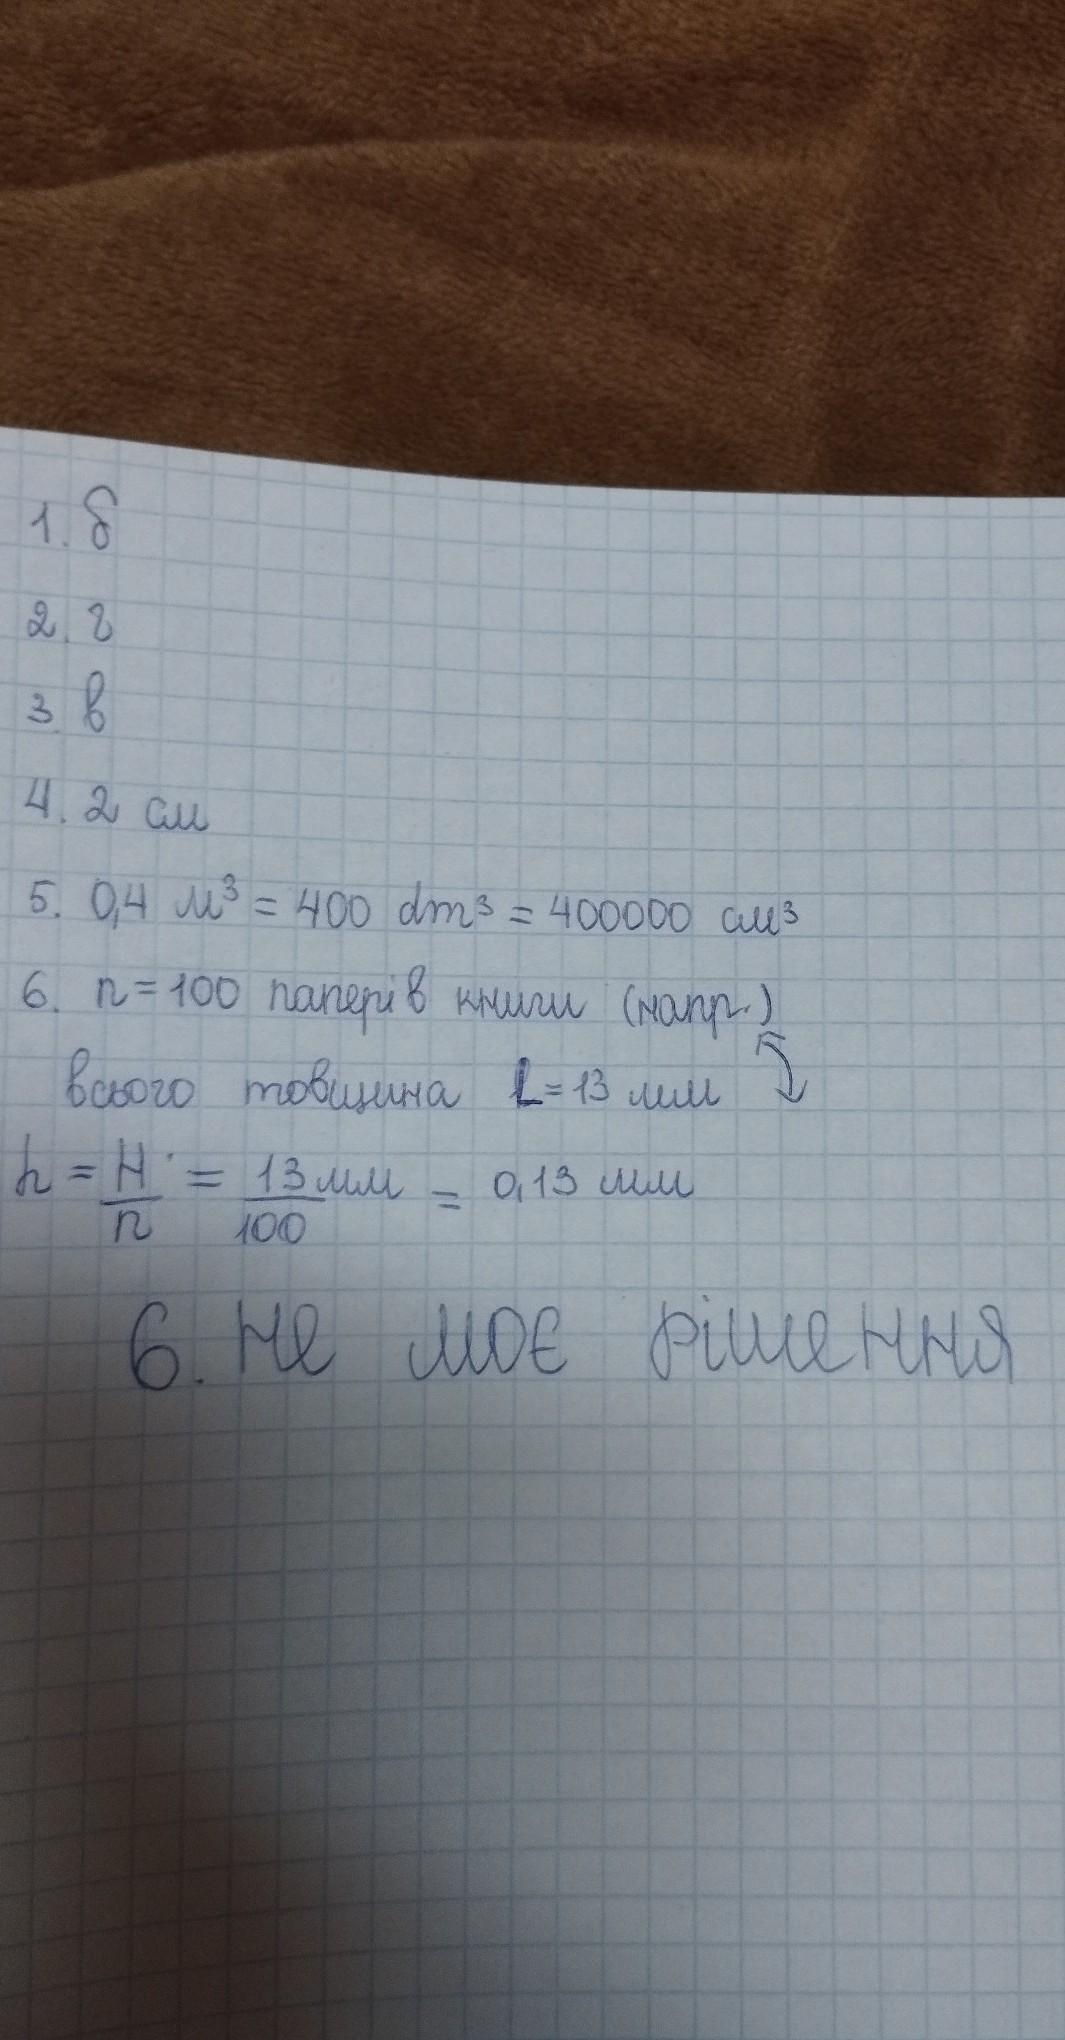 1. б
2. г
3. в
4. 2 см
5. 0,4 м³ = 400 dm³ = 400000 см³
6. n = 100 паперів книги (напр.)
всього товщина L = 13 мм
h = H/n = 13 мм/100 = 0,13 мм
6. не моє рішення